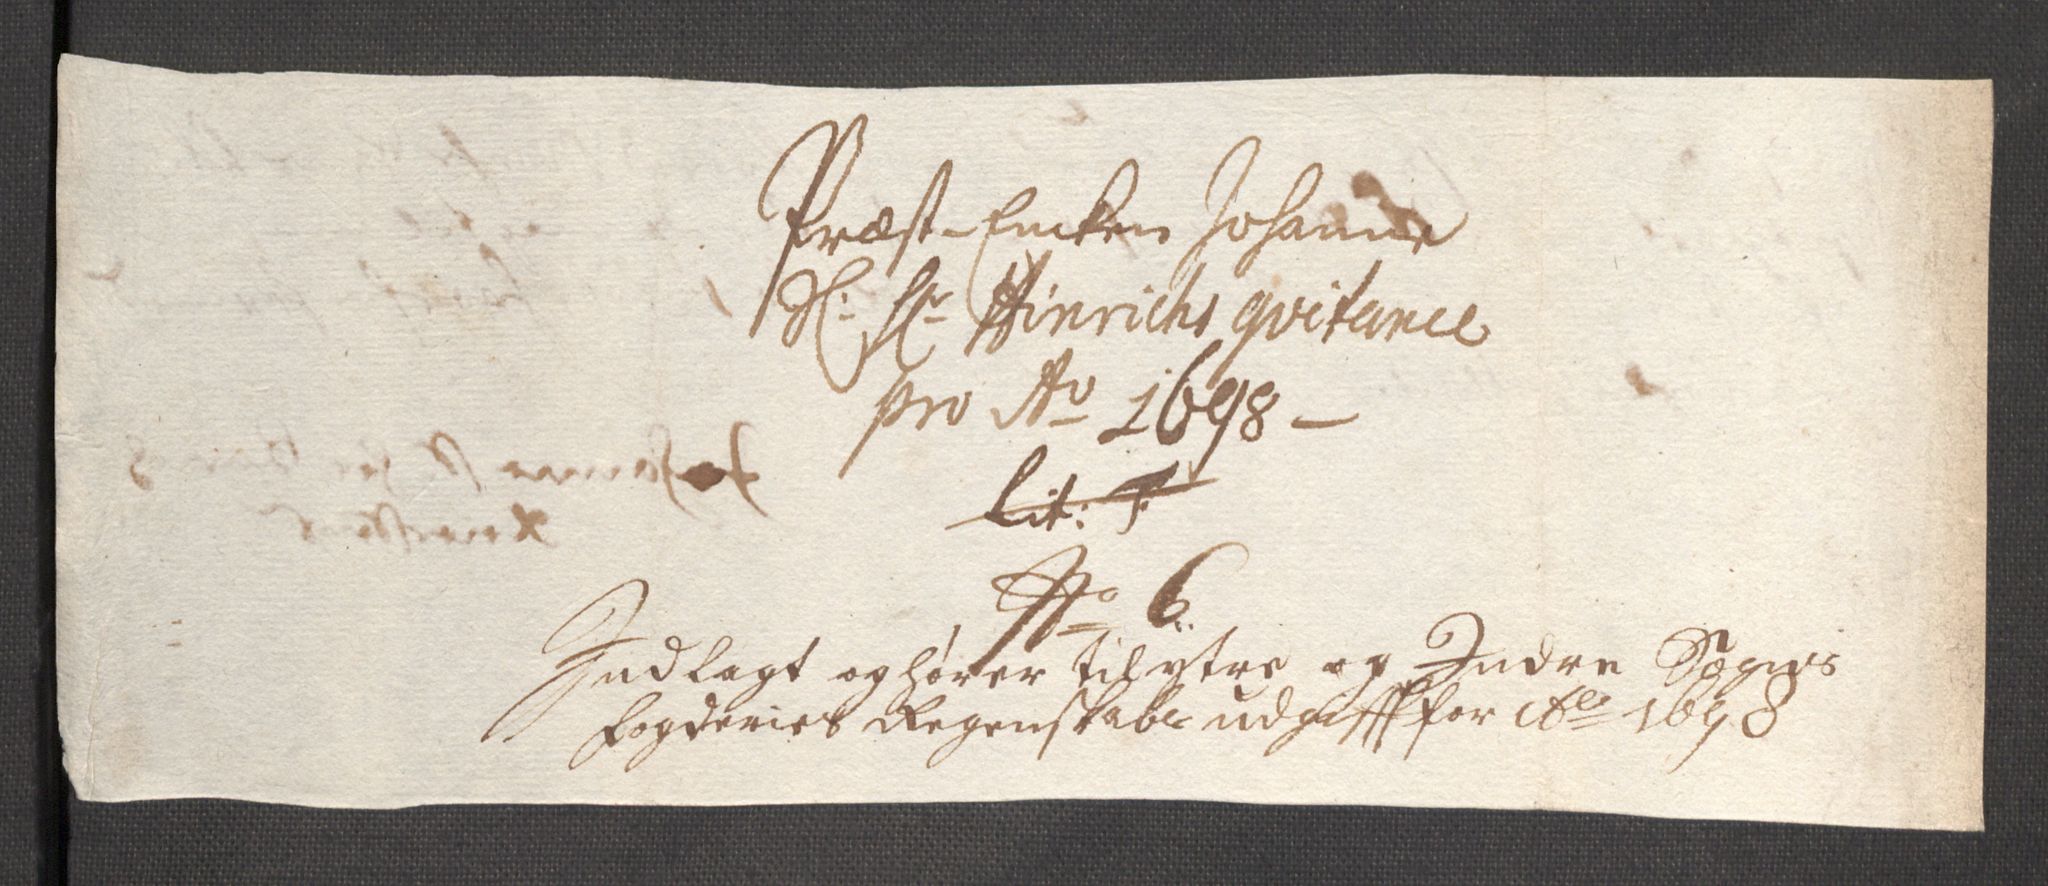 Præst-Encken Johanne
Sl: Hr Hinrichs qvitance
pro Ao 1698 –
Lit: F
No 6
Indlagt og hører til ytre og Indre Sogns
fogderies Regenskabs udgifft for Ao 1698